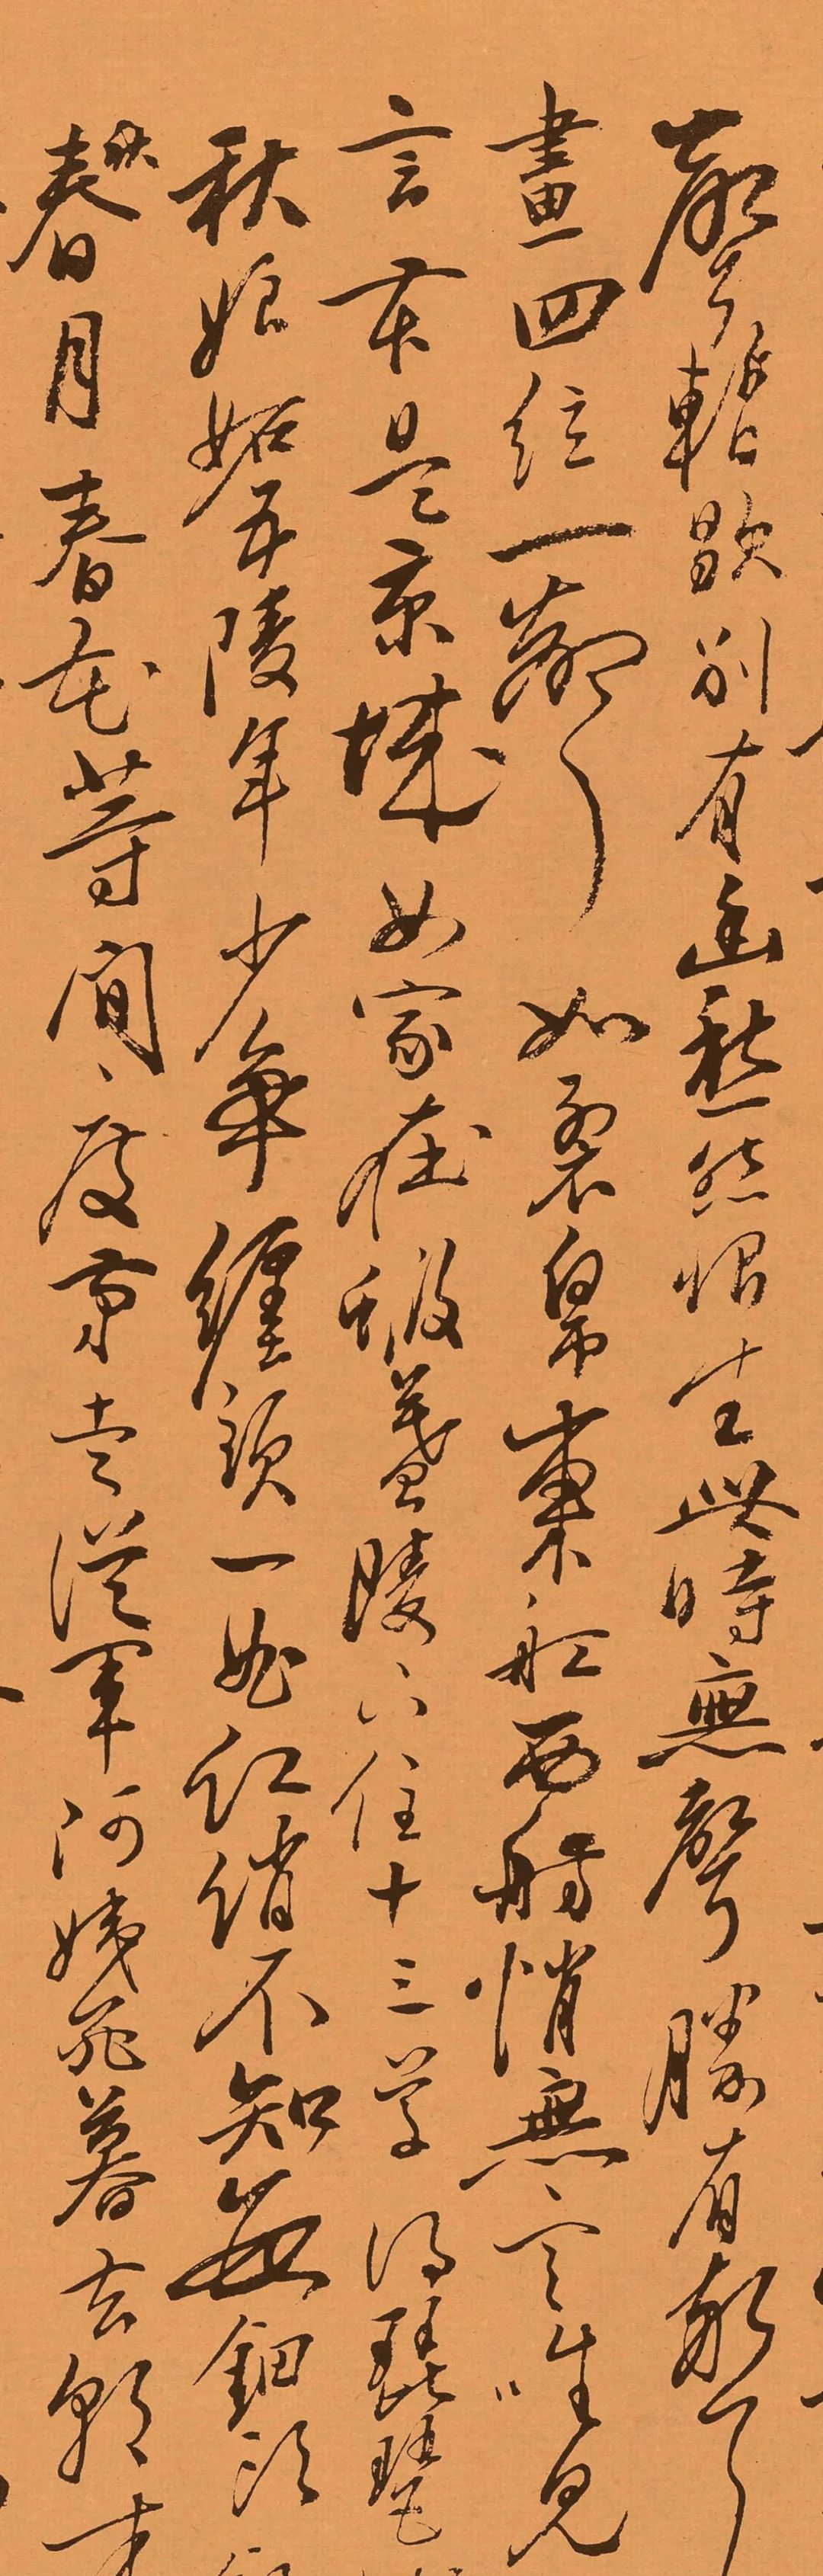 聲暫歇別有幽愁然恨生此時無聲勝有聲
畫四絃一聲如裂帛東船西舫悄無言唯見
言本是京城女家在蝦蟇陵下住十三學得琵琶
秋娘妬五陵年少爭纏頭一曲紅綃不知數鈿頭
秋春月春花等閒度弟走從軍阿姨死暮去朝來